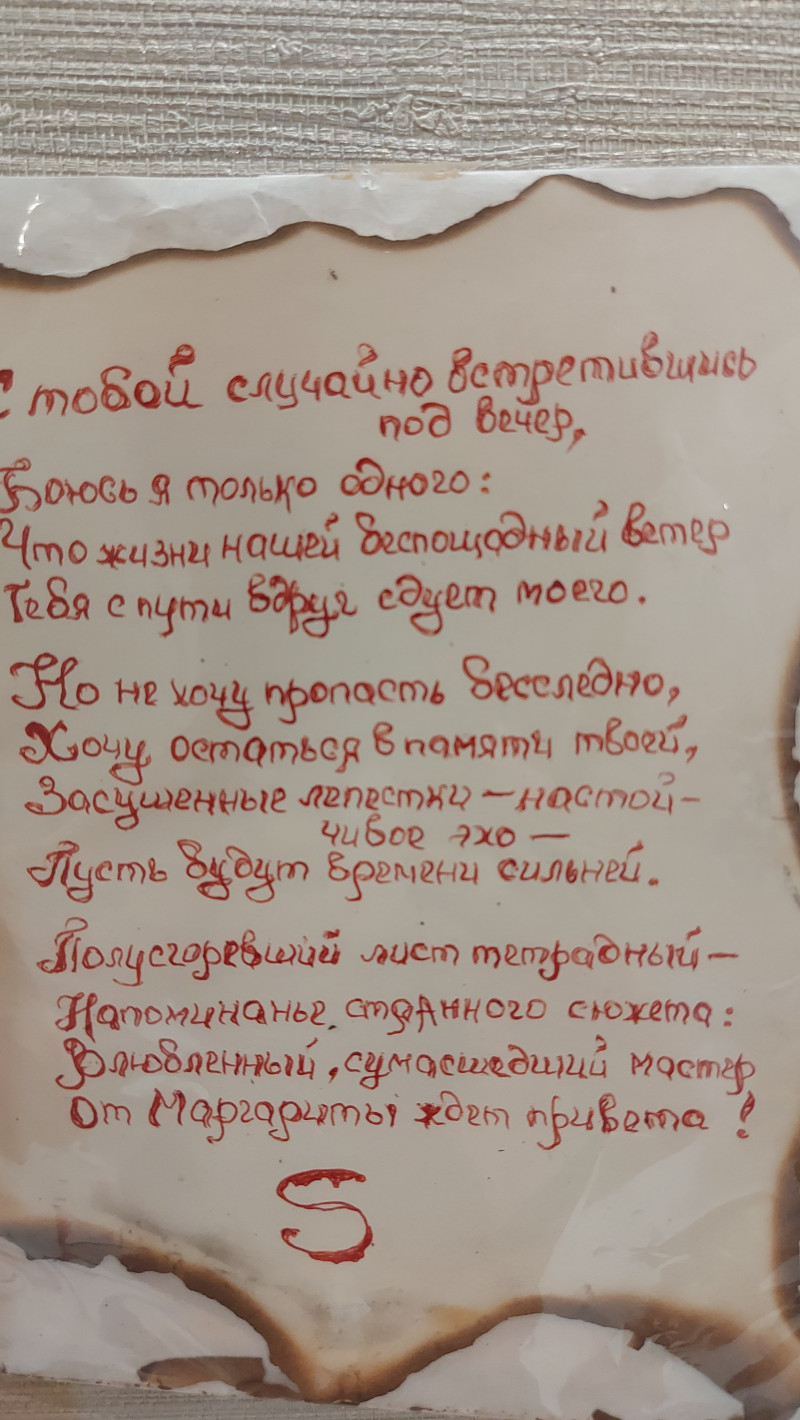 С тобой случайно встретившись
под вечер,
Боюсь я только одного:
Что жизни нашей беспощадный ветер
Тебя с пути вдруг сдует моего.
Но не хочу пропасть бесследно,
Хочу остаться в памяти твоей,
Засушенные лепестки – настой-
чивое эхо –
Пусть будут времени сильней.
Полусгоревший лист тетрадный –
Напоминанье странного сюжета:
Влюбленный, сумасшедший мастер
От Маргариты ждет привета!
S